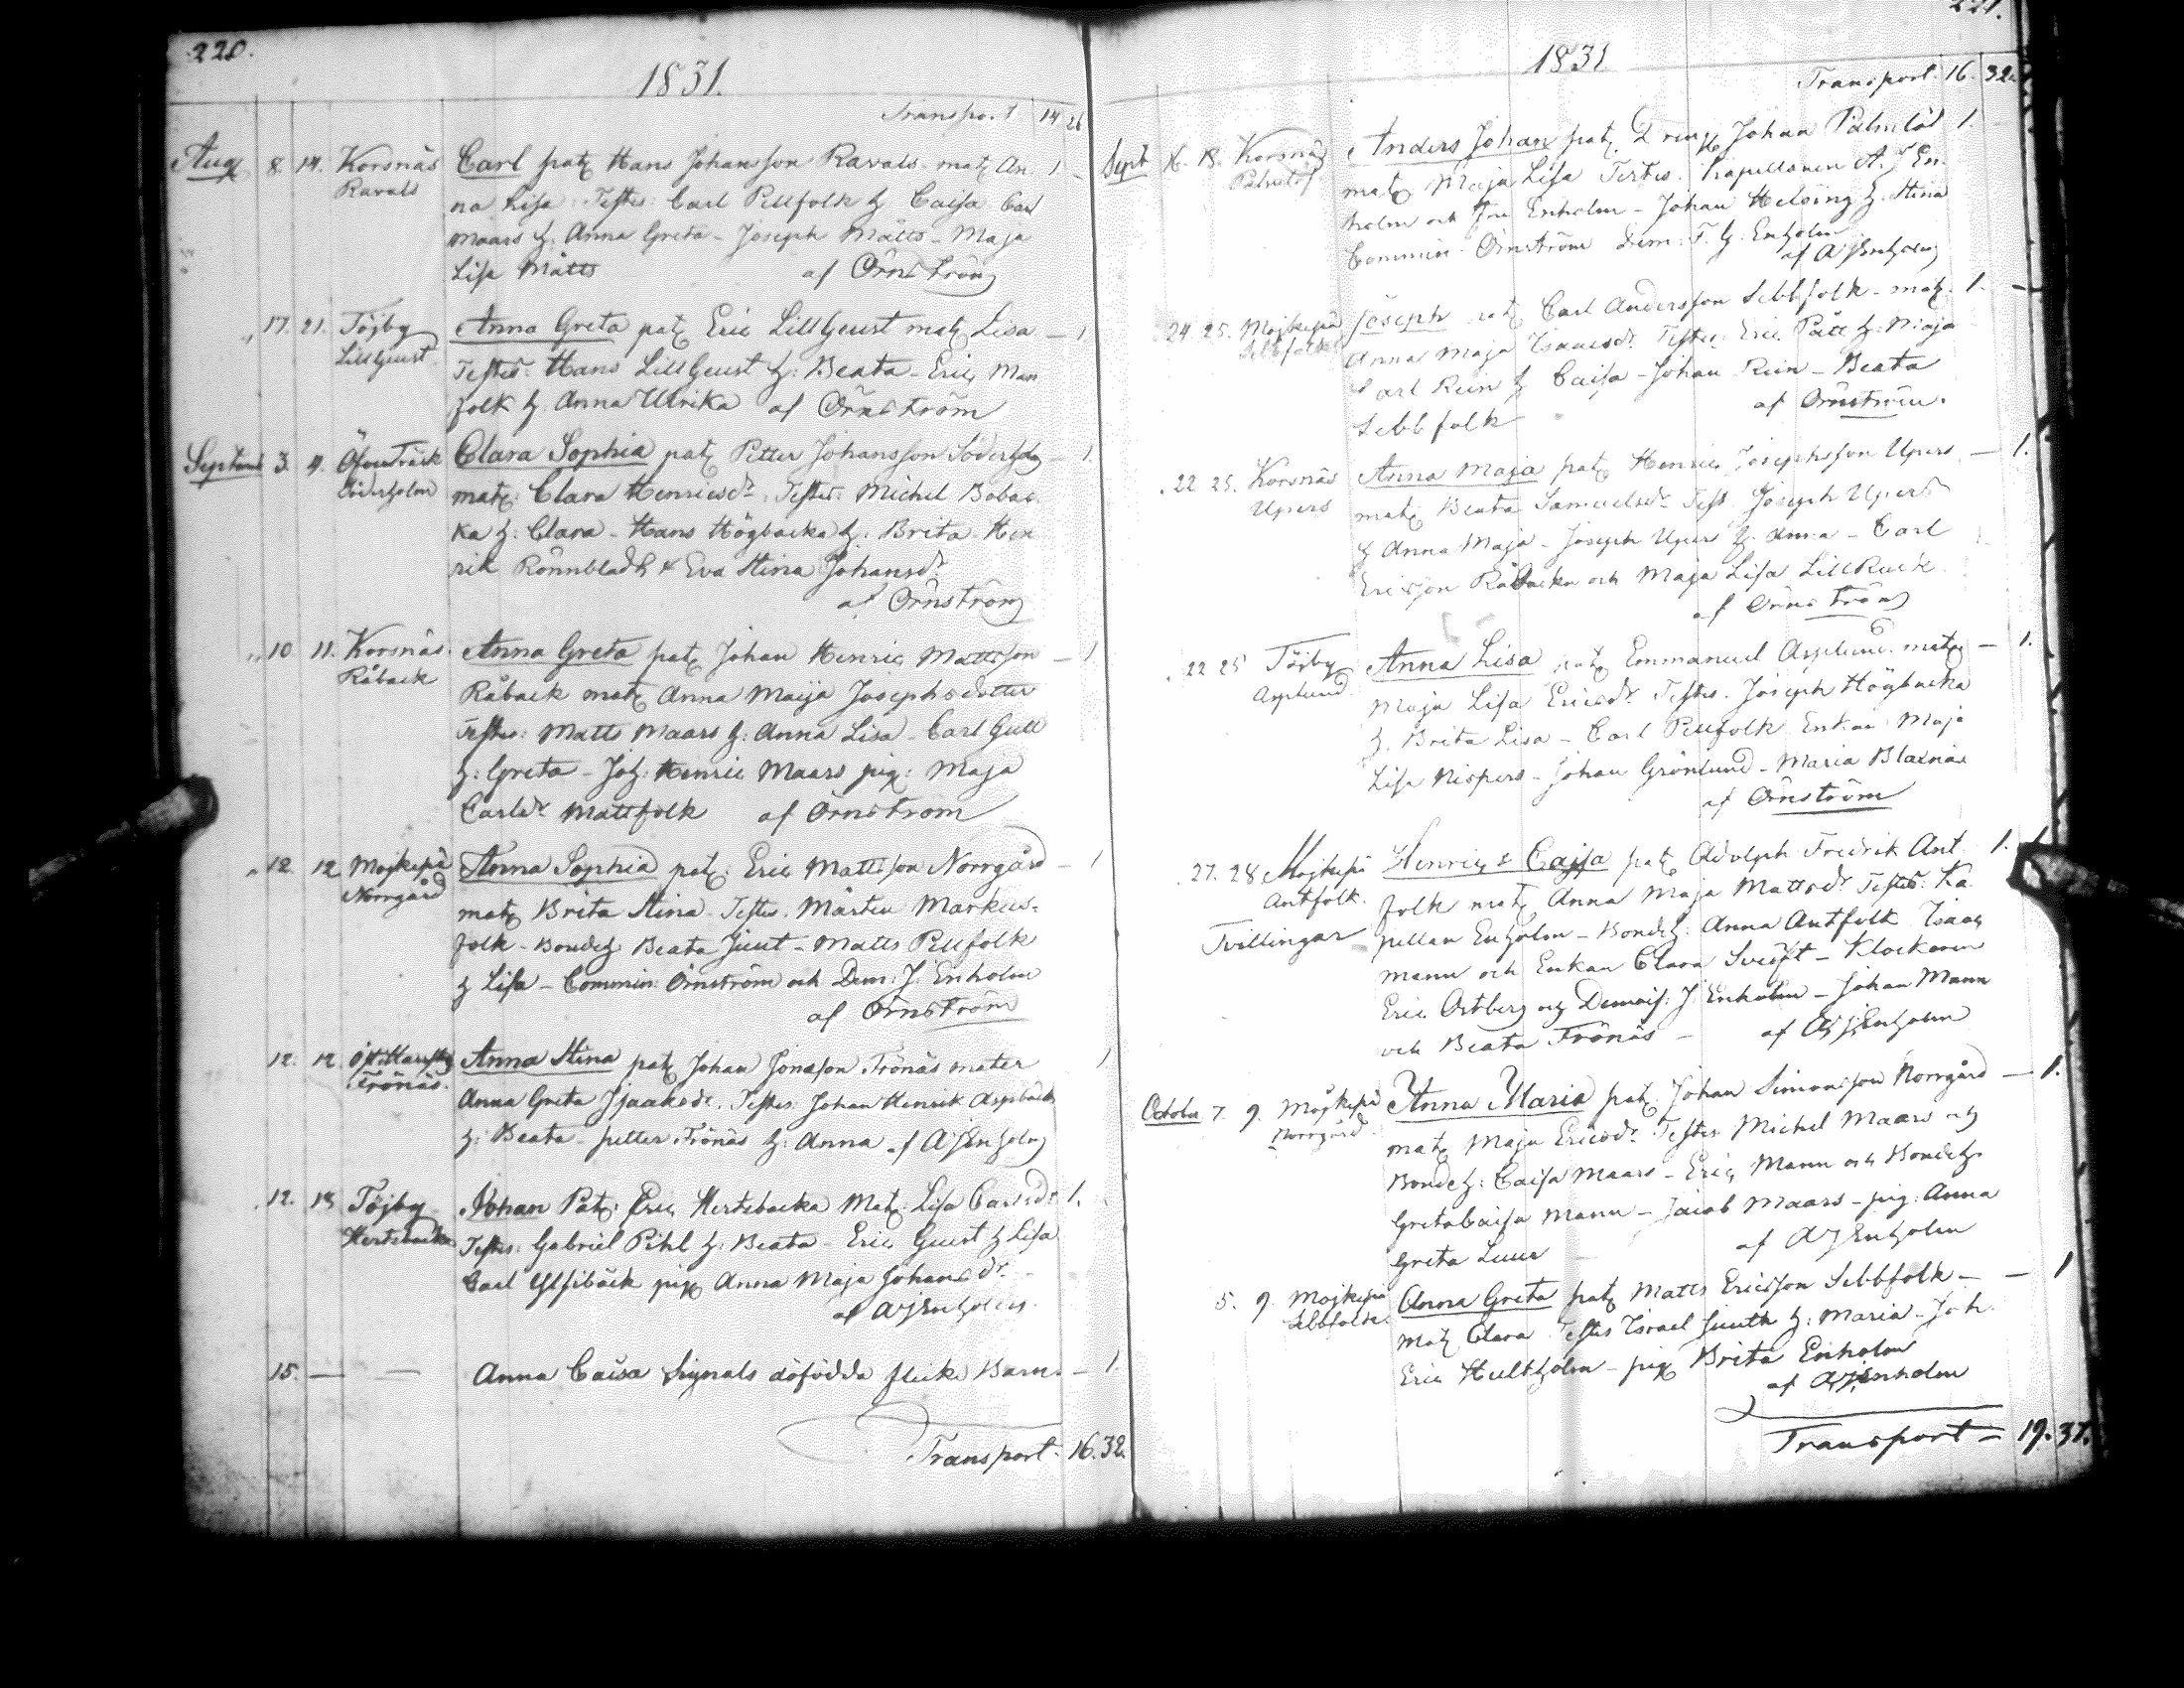 220.
1831.
Transport 14 26
Aug 8. 14. Korsnäs Carl pat Hans Johansson Ravals mat An 1.
Ravals na Lisa Testes: Carl Pellfolk h Caisa Carl
Maars h. Anna Greta - Joseph Mätts - Maja
Lisa Mätts af Örnström
17. 21. Töjby Anna Greta pat Eric LillGeust mat Lisa — 1
LillGeust Testes: Hans LillGeust h: Beata - Eric Man
folk h. Anna Ulrika af Örnström
Septemb 3. 4. Öfverträsk Clara Sophia pat Petter Johansson Söderholm — 1.
Söderholm mat: Clara Henricsdr. Testes: Michel Bobac
ka h: Clara - Hans Högbacka h: Brita Hen
rik Rönnbladh & Eva Stina Johansdr
af Örnström
10 11. Korsnäs Anna Greta pat Johan Henric Mattsson — 1
Råback Råback mat Anna Maija Josephsdotter
Testes: Matts Maars h: Anna Lisa - Carl Gull
h: Greta - Joh: Henric Maars pig: Maja
Carlsdr Mattfolk af Örnström
12 12 Mojkepä Anna Sophia pat: Eric Mattsson Norrgård — 1
Norrgård mat Brita Stina. Testes. Mårten Markus=
folk - Bondeh Beata Juut - Matts Pellfolk
h Lisa - Commin: Örnström och Dem: J: Enholm
af Örnström
12. 12. Anna Stina pat Johan Jonasson Trönäs mater 1
Trönäs. Anna Greta Isaaksdr. Testes: Johan Henrik Aspbäck
h: Beata - petter Trönäs h: Anna af AJEnholm
12. 13 Töjby Johan Pat: Eric Hertsbacka Mat: Lisa Carlsdr 1.
Hertsbacka Testes: Gabriel Pihl h: Beata - Eric Geust h Lisa
Carl pig Anna Maja Johansdr
af AJEnholm
15. — — Anna Caisa Signals döfödda flicke Barn. — 1
Transport. 16. 32.
221.
1831
Transport. 16. 32.
Sept 16. 18. Korsnäs Anders Johan pat. Dreng Johan Palmlöf 1.
Palmlöf mat Maja Lisa Testes. Kapellanen A. J En
holm och fru Enholm - Johan Helsing h. Stina
Commin. Örnström Dem. F. H. Enholm
af AJEnholm
24. 25. Mojkepä Joseph pat Carl Andersson Sebbfolk - mat. 1. —
Sebbfolk Anna Maja Isaacsdr. Testes: Eric Pått h: Maja
Carl Rein h Caisa - Johan Rein - Beata
Sebbfolk af Örnström.
22 25. Korsnäs Anna Maja pat Henric Josephsson Upers — 1.
Upers mat Beata Samuelsdr Test Joseph Upers
h Anna Maja - Joseph Upers h. Anna - Carl
Ericsson Råbacka och Maja Lisa LillRuck
af Örnström
22 25 Töjby Anna Lisa pat Emmanuel Asplund mat — 1.
Asplund Maja Lisa Ericsdr Testes. Joseph Högbacka
h. Brita Lisa - Carl Pellfolk Enkan Maja
Lisa Nispers - Johan Grönlund - Maria Blaxnäs
af Örnström
27. 28 Mojkepä Henric & Cajsa pat Adolph Fredrik Ant 1. 1
Antfolk. folk mat Anna Maja Mattsdr Testes: Ka
Tvillingar pellan Enholm - Bondeh: Anna Antfolk Isaac
Mann och Enkan Clara Sveüft - Klockaren
Eric Ostberg och Demois: J. Enholm - Johan Mann
och Beata Trönäs — af AJEnholm
October 7. 9. Mojkepä Anna Maria pat. Johan Simonsson Norrgård — 1.
Norrgård mat Maja Ericsdr. Testes Michel Maars och
Bondeh: Caisa Maars - Eric Mann och Bondeh
Greta Caisa Mann - Jacob Maars - pig: Anna
Greta af AJEnholm
5. 9. Mojkepä Anna Greta pat Matts Ericsson Sebbfolk — — 1
Sebbfolk mat Clara Testes Israel Juuth h: Maria - Joh.
Eric Hultholm - pig Brita Enholm
af AJEnholm
Transport = 19. 37.